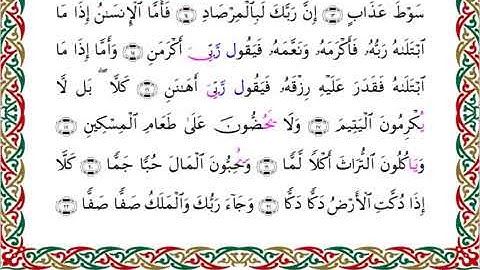 سَوْطَ عَذَابٍ ١٣ إِنَّ رَبَّكَ لَبِالْمِرْصَادِ ١٤ فَأَمَّا الْإِنسَٰنُ إِذَا مَا
ابْتَلَىٰهُ رَبُّهُۥ فَأَكْرَمَهُۥ وَنَعَّمَهُۥ فَيَقُول رَّبِّيَ أَكْرَمَنِ ١٥ وَأَمَّا إِذَا مَا
ابْتَلَىٰهُ فَقَدَرَ عَلَيْهِ رِزْقَهُۥ فَيَقُول رَّبِّيَ أَهَٰنَنِ ١٦ كَلَّا ۖ بَل لَّا
يُكْرِمُونَ الْيَتِيمَ ١٧ وَلَا يَحُضُّونَ عَلَىٰ طَعَامِ الْمِسْكِينِ ١٨
وَيَأْكُلُونَ التُّرَاثَ أَكْلًا لَّمًّا ١٩ وَيُحِبُّونَ الْمَالَ حُبًّا جَمًّا ٢٠ كَلَّا
إِذَا دُكَّتِ الْأَرْضُ دَكًّا دَكًّا ٢١ وَجَآءَ رَبُّكَ وَالْمَلَكُ صَفًّا صَفًّا ٢٢